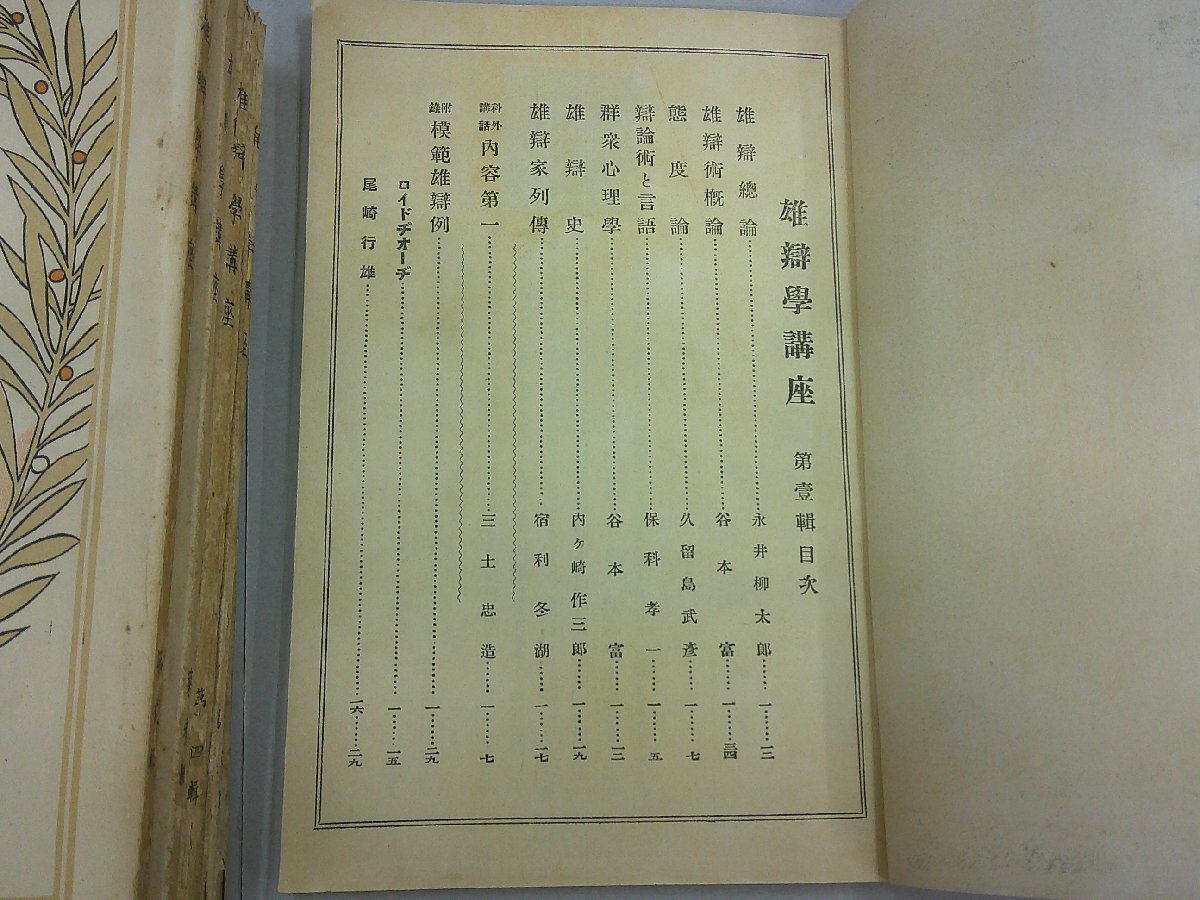 雄辯學講座 第壹輯目次
雄辯總論……永井柳太郎……一……一二
雄辯術槪論……谷本富……一……三四
態度論……久留島武彥……一……七
辯論術と言語……保科孝一……一……五
群衆心理學……谷本富……一……一二
雄辯史……內ヶ崎作三郞……一……一九
雄辯家列傳……宿利冬湖……一……一七
科外講話 內容第一……三土忠造……一……七
附錄 模範雄辯例……一……二九
ロイドヂオーヂ……一……一五
尾崎行雄……一六……二九
雄辯學講座
第四輯